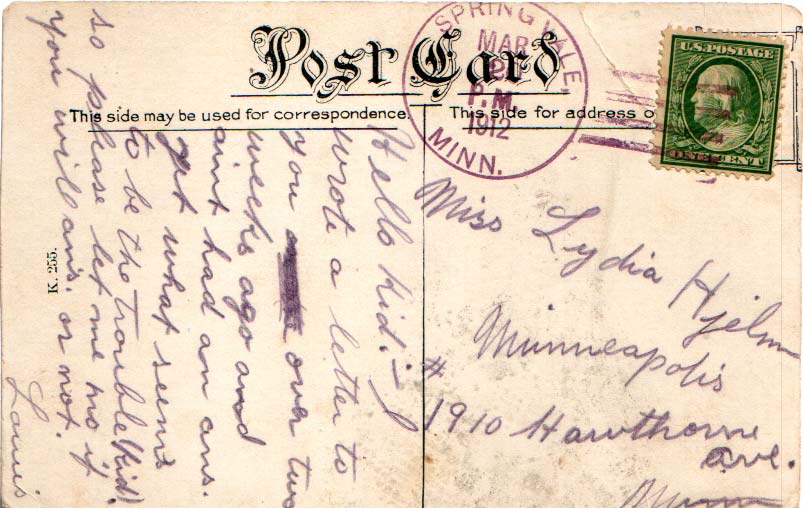 Post Card
This side may be used for correspondence.
This side for address o
SPRINGVALE,
MAR
P.M.
1912
MINN.
U.S. POSTAGE
ONE CENT
K. 255.
Hello Kid:- I
wrote a letter to
you over two
weeks ago and
aint had an ans.
yet what seems
to be the trouble (Kid)
so please let me no if
you will ans. or not.
Louis
Miss Lydia Hjelm
Minneapolis
# 1910 Hawthorne
ave.
Minn